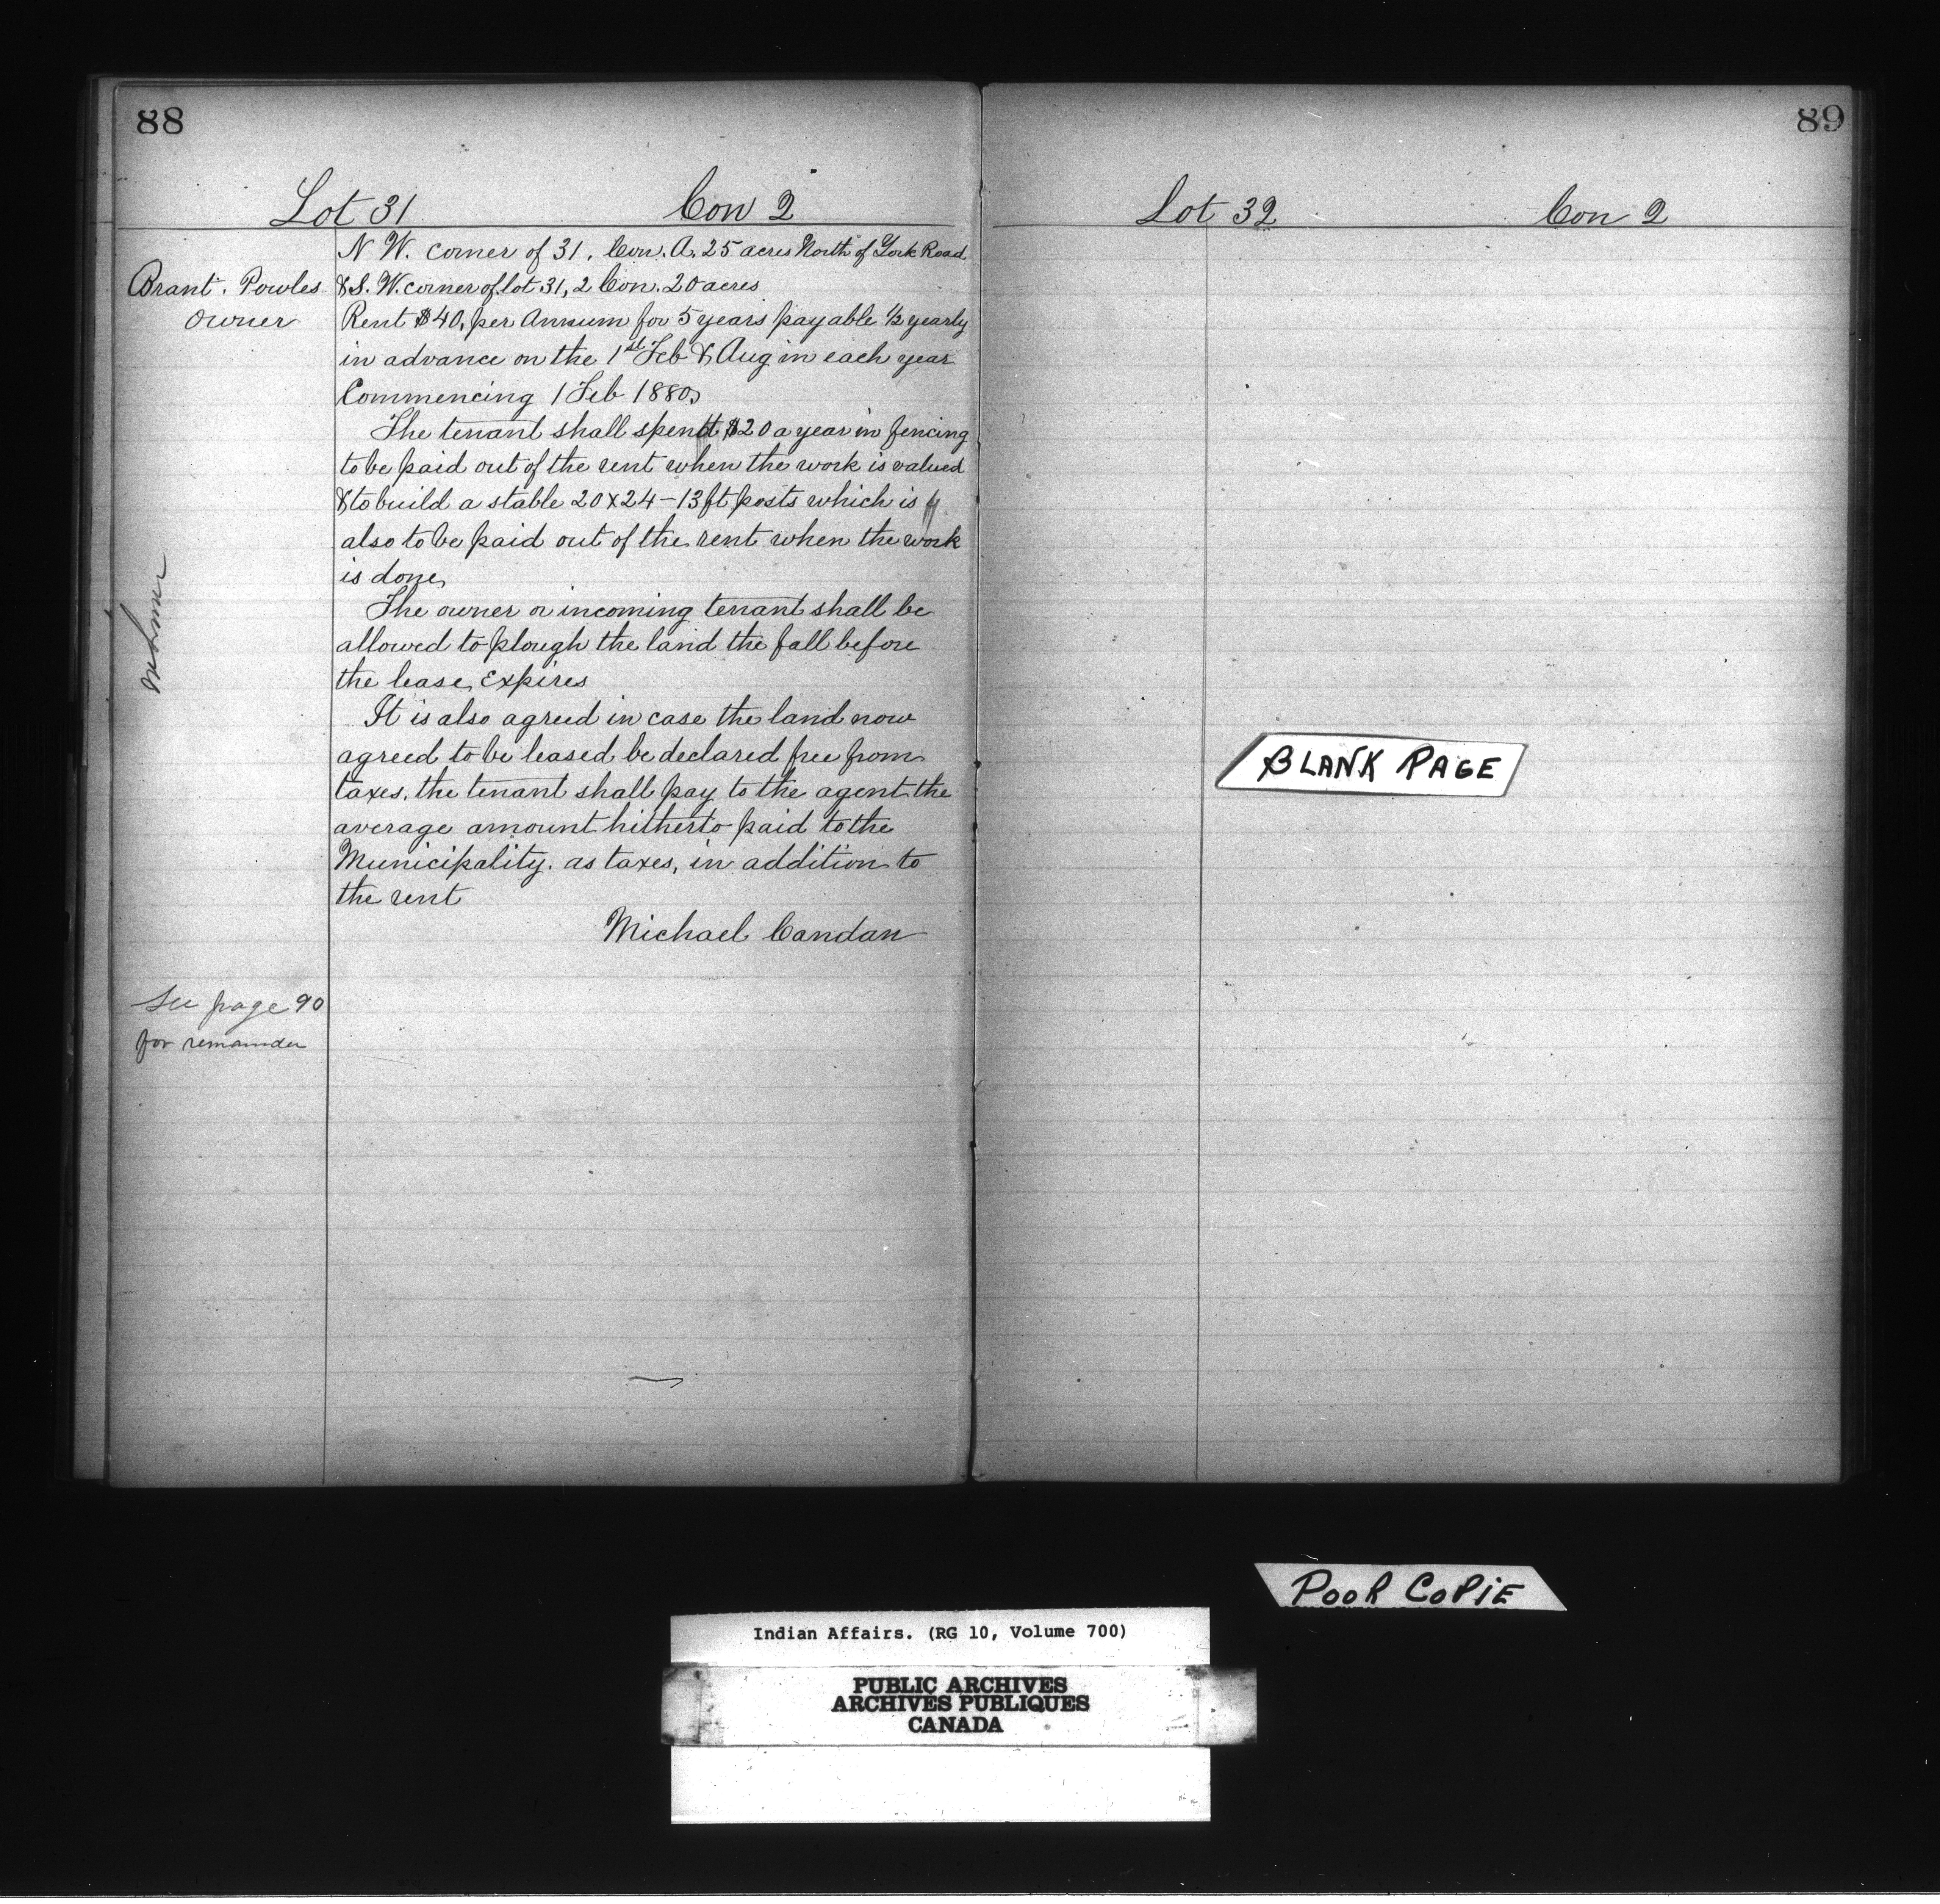 88
Lot 31 Con 2
N W. corner of 31, Con. A. 25 acres North of York Road
Brant. Powles
owner
& S. W. corner of lot 31, 2 Con. 20 acres
Rent $40, per Annum for 5 years payable ½ yearly
in advance on the 1st Feb & Aug in each year
Commencing 1 Feb 1880,
The tenant shall spend $20 a year in fencing
to be paid out of the rent when the work is valued
& to build a stable 20 x 24 - 13 ft posts which is
also to be paid out of the rent when the work
is done,
The owner or incoming tenant shall be
allowed to plough the land the fall before
the lease, Expires
It is also agreed in case the land now
agreed to be leased be declared free from
taxes, the tenant shall pay to the agent the
average amount hitherto paid to the
Municipality. as taxes, in addition to
the rent
Michael Candan
See page 90
for remainder
89
Lot 32 Con 2
BLANK PAGE
POOR COPIE
Indian Affairs. (RG 10, Volume 700)
PUBLIC ARCHIVES
ARCHIVES PUBLIQUES
CANADA